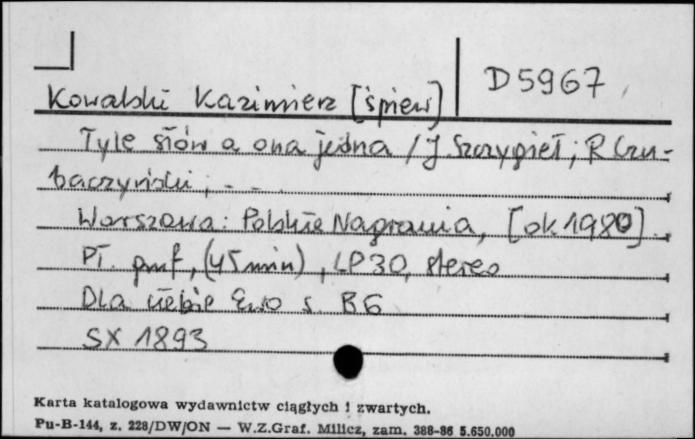 D5967
Kowalski Kazimierz [śpiew]
Tyle słów a ona jedna / J Szczygieł; R Czu-
baczyński; - -
Warszawa: Polskie Nagrania, [ok 1980].
Pł. gmf, (45 min), LP30, stereo
Dla ciebie Ewo s. B6
SX 1893
Karta katalogowa wydawnictw ciągłych i zwartych.
Pu-B-144, z. 228/DW/ON — W.Z.Graf. Milicz, zam. 388-86 5.650.000